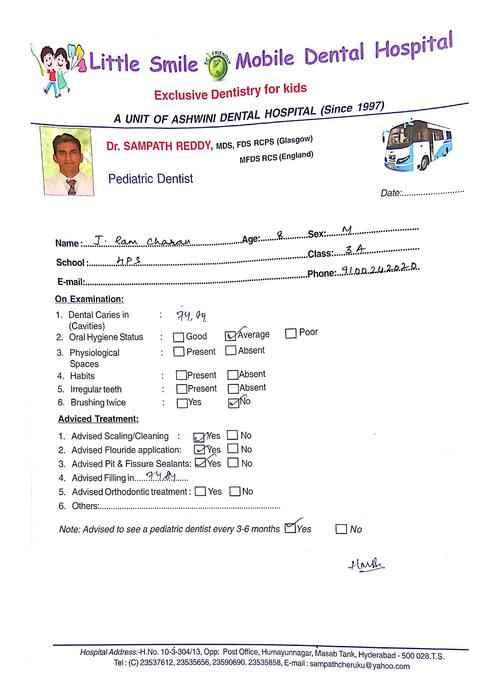 Little Smile ECO FRIENDLY Mobile Dental Hospital
Exclusive Dentistry for kids
A UNIT OF ASHWINI DENTAL HOSPITAL (Since 1997)
Dr. SAMPATH REDDY, MDS, FDS RCPS (Glasgow)
MFDS RCS (England)
Pediatric Dentist
Date:
Name: J. Ram Charan Age: 8 Sex: M
School: HPS Class: 3A
E-mail: Phone: 9100242020
On Examination:
1. Dental Caries in :
(Cavities)
2. Oral Hygiene Status : Good Average Poor
3. Physiological : Present Absent
Spaces
4. Habits : Present Absent
5. Irregular teeth : Present Absent
6. Brushing twice : Yes No
Adviced Treatment:
1. Advised Scaling/Cleaning : Yes No
2. Advised Flouride application: Yes No
3. Advised Pit & Fissure Sealants: Yes No
4. Advised Filling in
5. Advised Orthodontic treatment : Yes No
6. Others:
Note: Advised to see a pediatric dentist every 3-6 months Yes No
Hospital Address:-H.No. 10-3-304/13, Opp: Post Office, Humayunnagar, Masab Tank, Hyderabad - 500 028.T.S.
Tel : (C) 23537612, 23535656, 23590690. 23535858, E-mail : sampathcheruku@yahoo.com